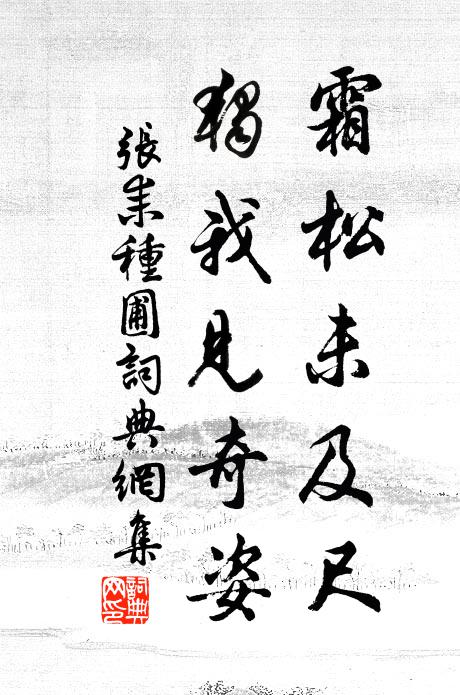 霜松未及尺
獨我見奇姿
張耒種圃詞典網集
詞典网印